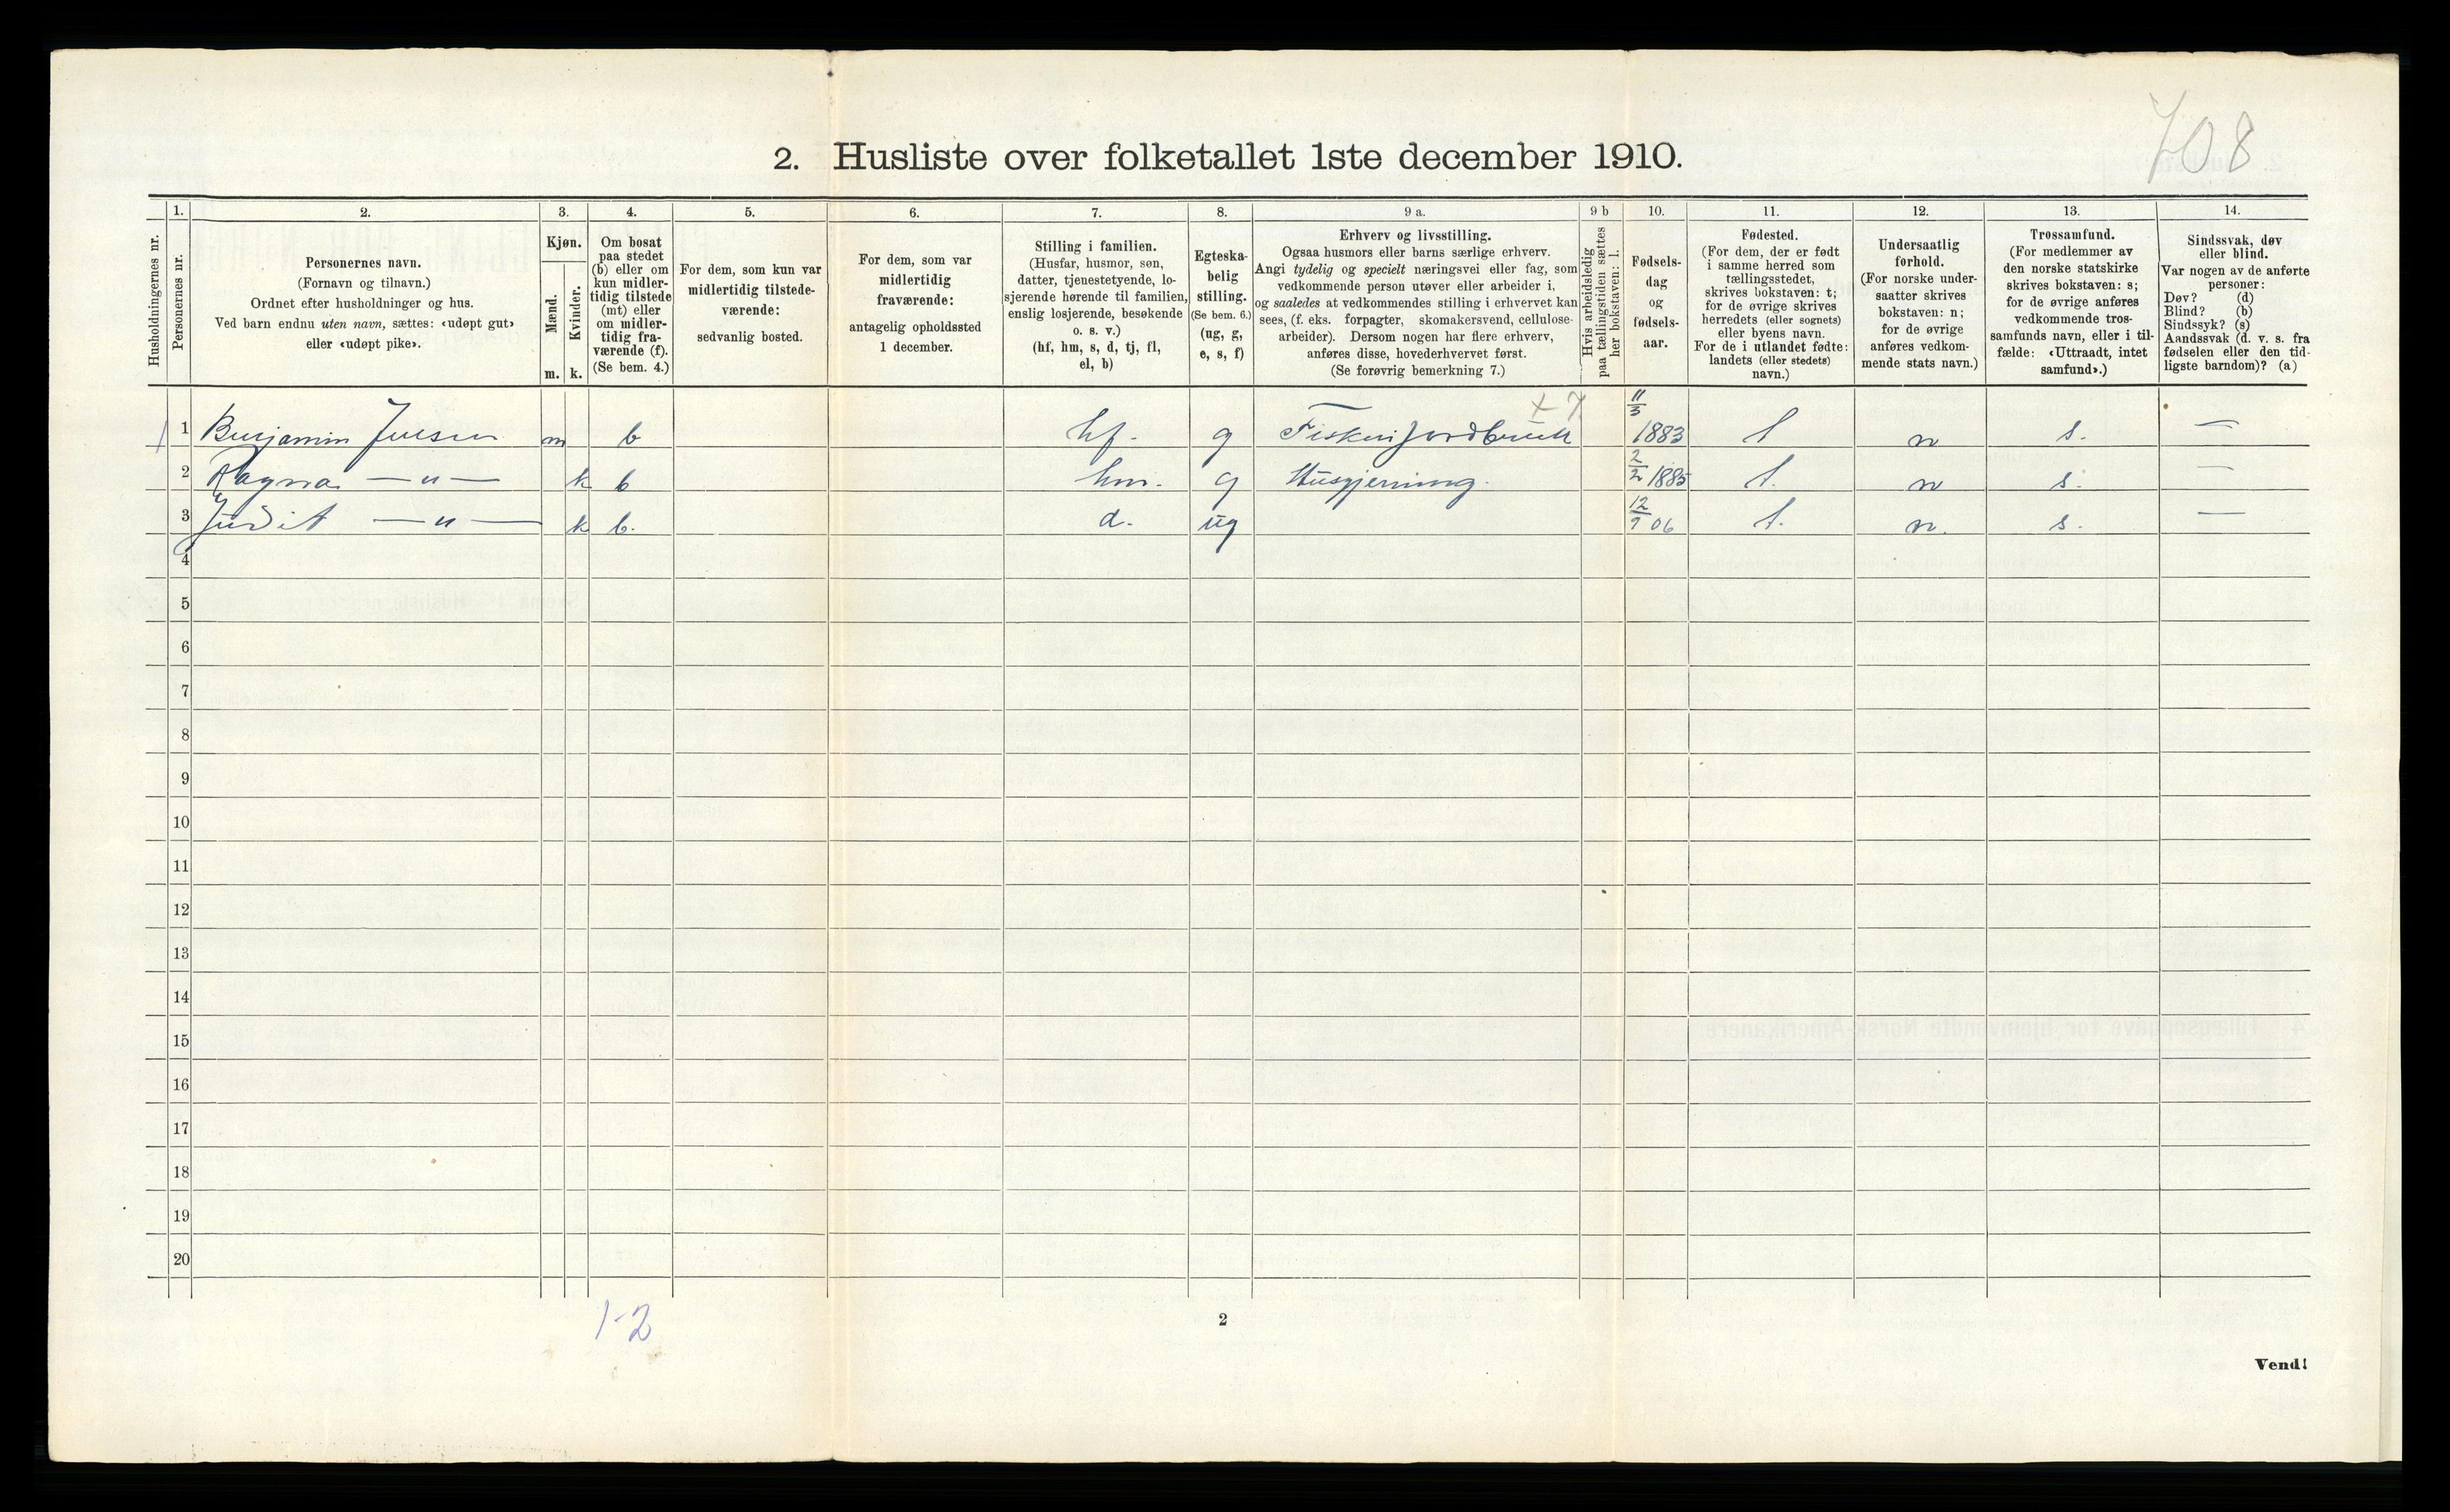 708
2. Husliste over folketallet 1ste december 1910.
Husholdningernes nr.
1.
Personernes nr.
2.
Personernes navn.
(Fornavn og tilnavn.)
Ordnet efter husholdninger og hus.
Ved barn endnu uten navn, sættes: «udøpt gut»
eller «udøpt pike».
3.
Kjøn.
Mænd.
Kvinder.
m. k.
4.
Om bosat
paa stedet
(b) eller om
kun midler-
tidig tilstede
(mt) eller
om midler-
tidig fra-
værende (f).
(Se bem. 4.)
5.
For dem, som kun var
midlertidig tilstede-
værende:
sedvanlig bosted.
6.
For dem, som var
midlertidig
fraværende:
antagelig opholdssted
1 december.
7.
Stilling i familien.
(Husfar, husmor, søn,
datter, tjenestetyende, lo-
sjerende hørende til familien,
enslig losjerende, besøkende
o. s. v.)
(hf, hm, s, d, tj, fl,
el, b)
8.
Egteska-
belig
stilling.
(Se bem. 6.)
(ug, g,
e, s, f)
9 a.
Erhverv og livsstilling.
Ogsaa husmors eller barns særlige erhverv.
Angi tydelig og specielt næringsvei eller fag, som
vedkommende person utøver eller arbeider i,
og saaledes at vedkommendes stilling i erhvervet kan
sees, (f. eks. forpagter, skomakersvend, cellulose-
arbeider). Dersom nogen har flere erhverv,
anføres disse, hovederhvervet først.
(Se forøvrig bemerkning 7.)
9 b
Hvis arbeidsledig
paa tællingstiden sættes
her bokstaven: l.
10.
Fødsels-
dag
og
fødsels-
aar.
11.
Fødested.
(For dem, der er født
i samme herred som
tællingsstedet,
skrives bokstaven: t;
for de øvrige skrives
herredets (eller sognets)
eller byens navn.
For de i utlandet fødte:
landets (eller stedets)
navn.)
12.
Undersaatlig
forhold.
(For norske under-
saatter skrives
bokstaven: n;
for de øvrige
anføres vedkom-
mende stats navn.)
13.
Trossamfund.
(For medlemmer av
den norske statskirke
skrives bokstaven: s;
for de øvrige anføres
vedkommende tros-
samfunds navn, eller i til-
fælde: «Uttraadt, intet
samfund».)
14.
Sindssvak, døv
eller blind.
Var nogen av de anførte
personer:
Døv? (d)
Blind? (b)
Sindssyk? (s)
Aandssvak (d. v. s. fra
fødselen eller den tid-
ligste barndom)? (a)
1 Benjamin Jensen m b hf. g Fiskeri Jordbruk 11/3 1883 t n s. —
2 Ragna —"— k b hm. g Husgjerning. 2/2 1885 t. n s. —
3 Judit —"— k b. d. ug 12/9 06 t. n. s. —
4
5
6
7
8
9
10
11
12
13
14
15
16
17
18
19
20
1-2
2
Vend!